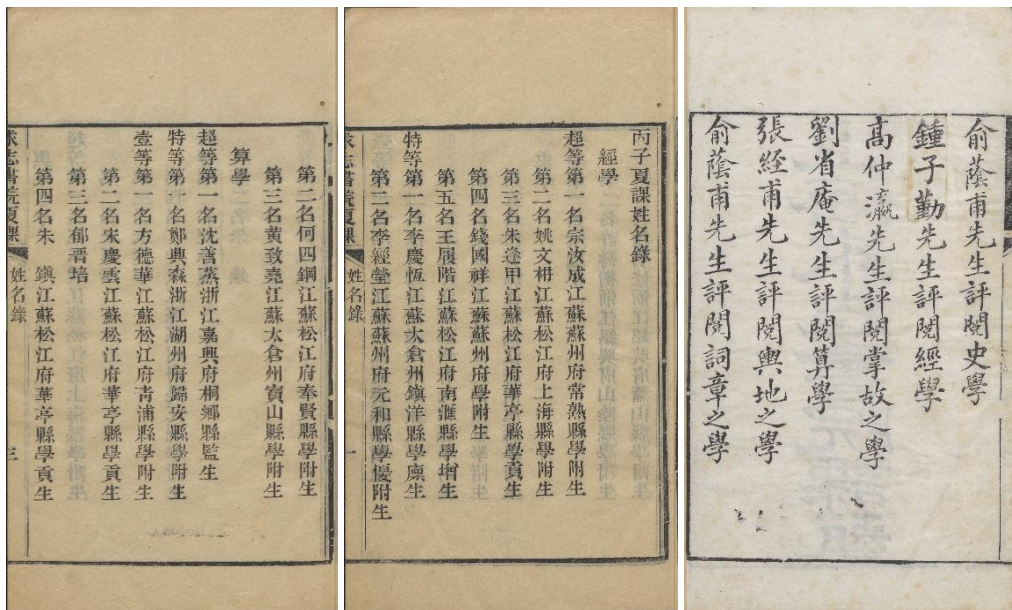 俞蔭甫先生評閱史學
鍾子勤先生評閱經學
高仲瀛先生評閱掌故之學
劉省庵先生評閱算學
張經甫先生評閱輿地之學
俞蔭甫先生評閱詞章之學
丙子夏課姓名錄
經學
超等第一名宗汝成江蘇蘇州府常熟縣學附生
第二名姚文枏江蘇松江府上海縣學附生
第三名朱逢甲江蘇松江府華亭縣學貢生
第四名錢國祥江蘇蘇州府學附生
第五名王履階江蘇松江府南滙縣學增生
特等第一名李慶恆江蘇太倉州鎮洋縣學廪生
第二名李經瑩江蘇蘇州府元和縣學優附生
求志書院夏課
姓名錄
一
第二名何四鋼江蘇松江府奉賢縣學附生
第三名黃致堯江蘇太倉州寶山縣學附生
算學
超等第一名沈善蒸浙江嘉興府桐鄉縣監生
特等第一名鄭興森浙江湖州府歸安縣學附生
壹等第一名方德華江蘇松江府青浦縣學附生
第二名宋慶雲江蘇松江府華亭縣學貢生
第三名郁晋培
第四名朱 鎮江蘇松江府華亭縣學貢生
求志書院夏課
姓名錄
三